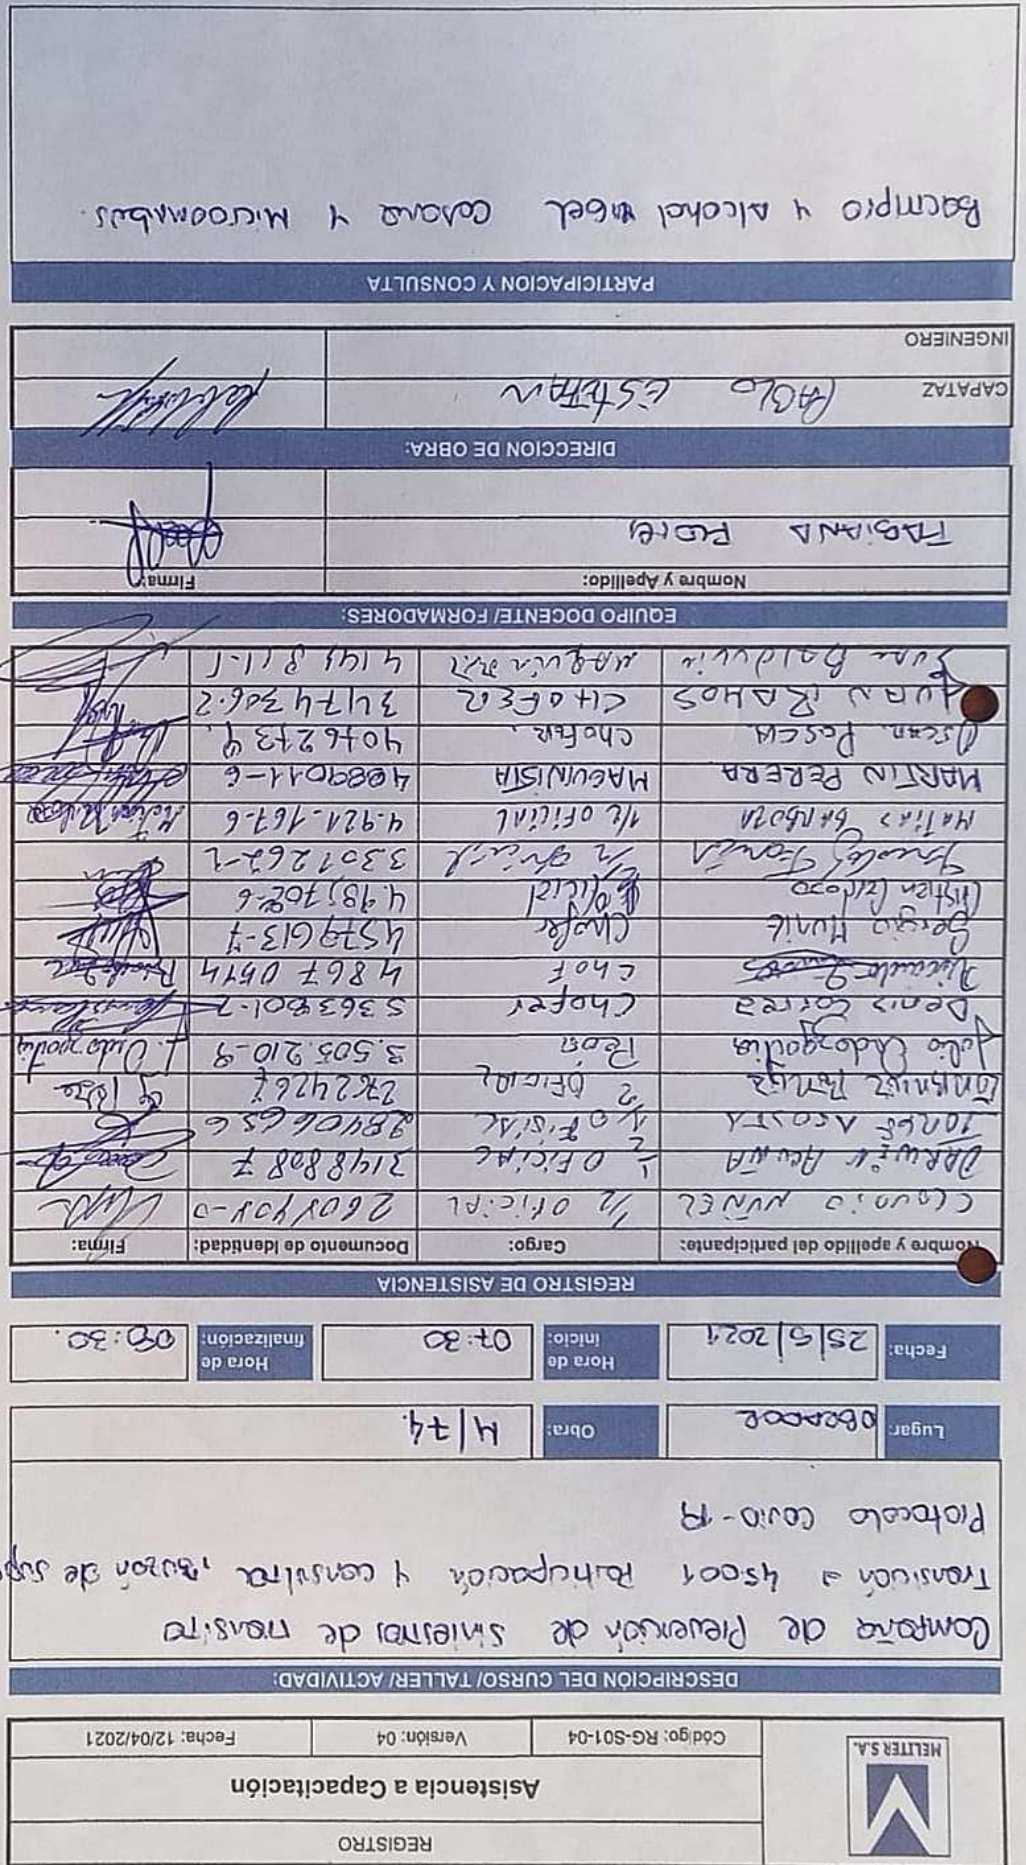 MELITER S.A.
REGISTRO
Asistencia a Capacitación
Código: RG-S01-04 Versión: 04 Fecha: 12/04/2021
DESCRIPCIÓN DEL CURSO/ TALLER/ ACTIVIDAD:
Campaña de Prevención de siniestros de transito
Transición a 45001 Participación y consulta, Buzón de
Protocolo Covid-19
Lugar: OBRADOR Obra: M/74.
Fecha: 25/5/2021 Hora de inicio: 07:30 Hora de finalización: 08:30.
REGISTRO DE ASISTENCIA
Nombre y apellido del participante: Cargo: Documento de Identidad: Firma:
CLAUDIO NUÑEZ 1/2 OFICIAL 2604404-0
DARWIN ACUÑA 1/2 OFICIAL 3148808 7
JORGE ACOSTA 2840665 6
1/2 OFICIAL 2762426
Julio Ordozgoitia Peón 3.505.210-9 J. Ordozgoitia
Denis Correa Chofer 5363801-7
Ricardo Chof 4867 0544
Sergio Chofer 4579613-7
Cristian Cardozo Oficial 4.985702-6
1/2 oficial 3301262-2
MATIAS BARBOZA 1/2 OFICIAL 4.921-167-6
MARTIN PERERA MAQUINISTA 4089011-6
Oscar Chofer. 4046273 9.
JUAN RAMOS CHOFER 3474306-2
Juan Balduvin MAQUINISTA
EQUIPO DOCENTE/ FORMADORES:
Nombre y Apellido: Firma:
FABIANA Flores
DIRECCION DE OBRA:
CAPATAZ PABLO ESTEFAN
INGENIERO
PARTICIPACION Y CONSULTA
y Alcohol en gel y Microomnibus.